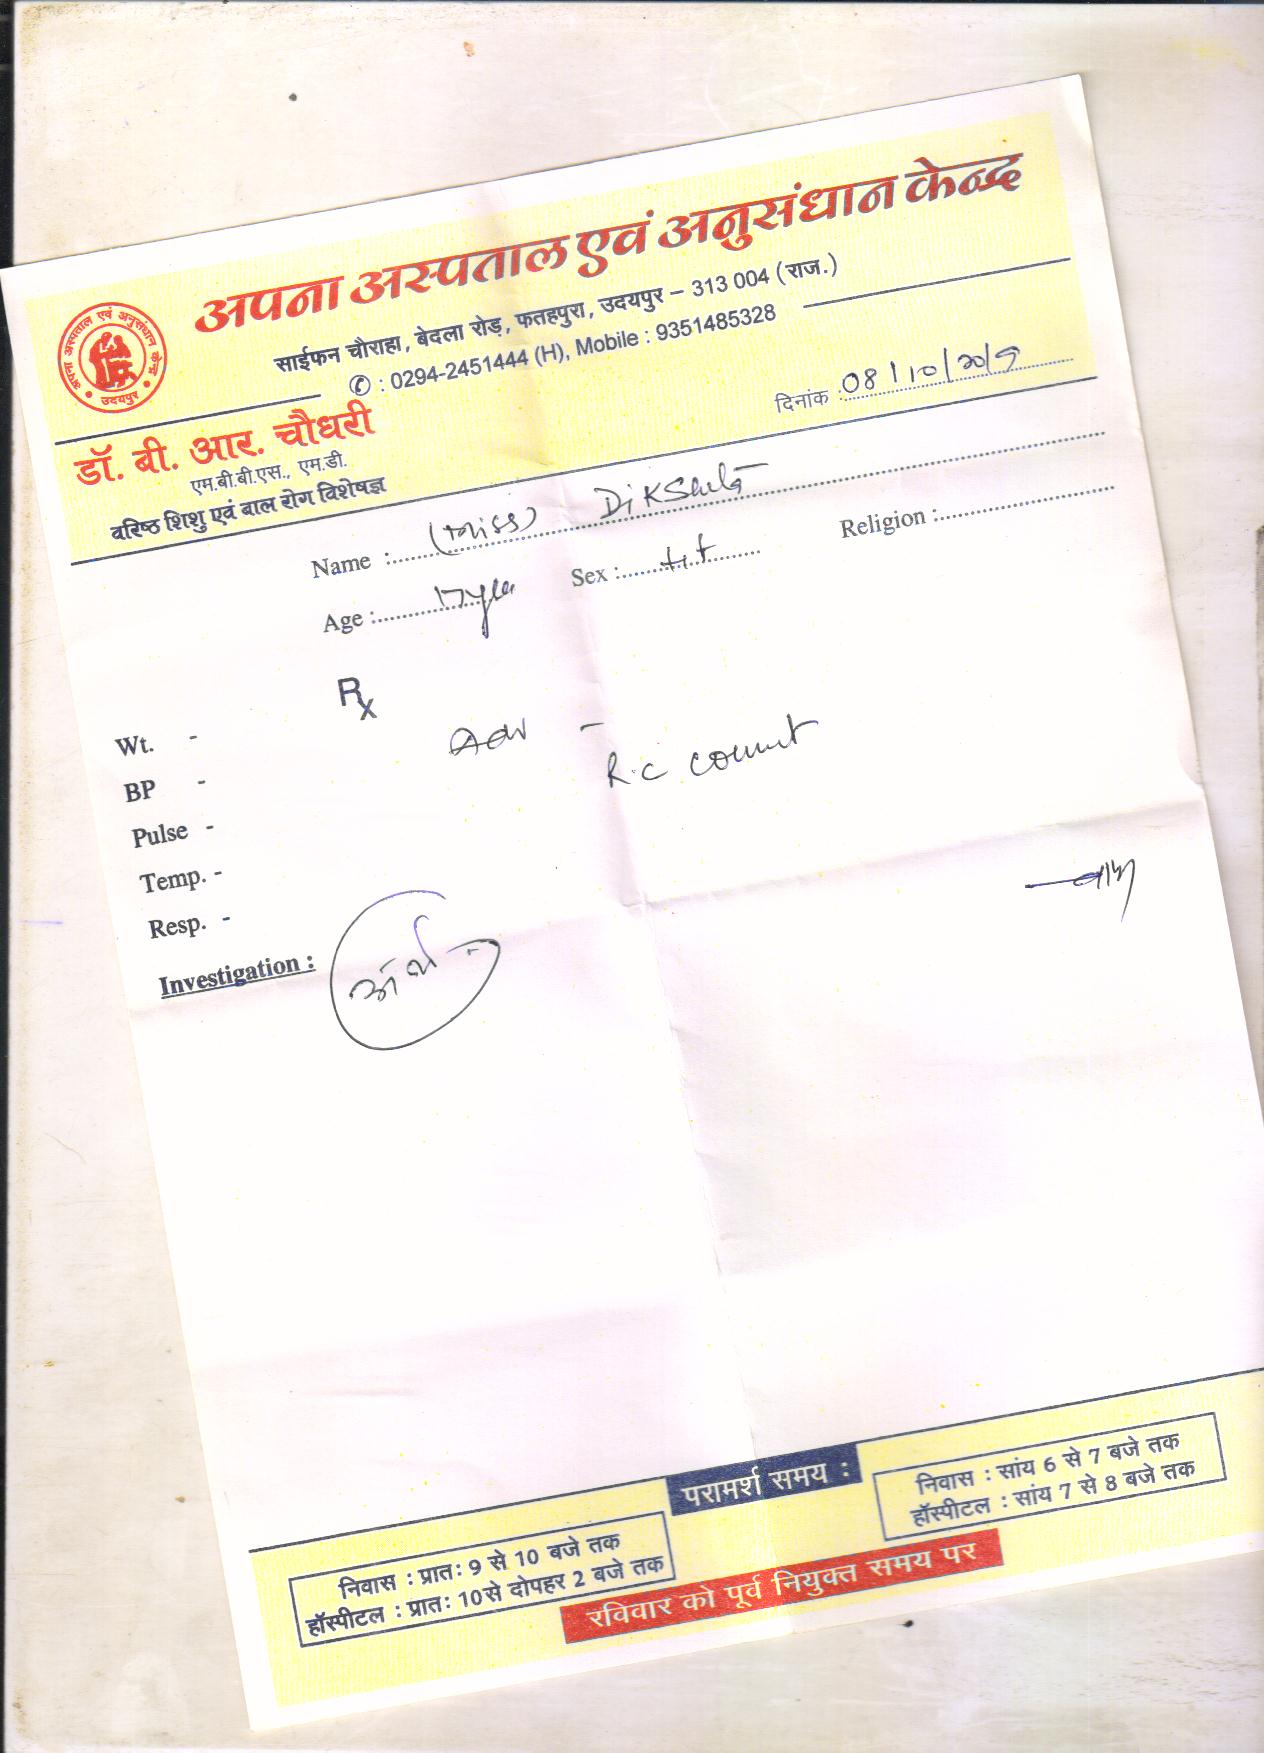 अपना अस्पताल एवं अनुसंधान केन्द्र
साईफन चौराहा, बेदला रोड़, फतहपुरा, उदयपुर – 313 004 (राज.)
✆ : 0294-2451444 (H), Mobile : 9351485328
अपना अस्पताल एवं अनुसंधान केन्द्र
उदयपुर
दिनांक : 08/10/2019
डॉ. बी. आर. चौधरी
एम.बी.बी.एस., एम.डी.
वरिष्ठ शिशु एवं बाल रोग विशेषज्ञ
Name : (Miss) Dikshita
Age : Sex : Religion :
Rx
Wt. -
Adv -
R.C count
BP -
Pulse -
Temp. -
Resp. -
Investigation :
परामर्श समय :
निवास : प्रातः 9 से 10 बजे तक
हॉस्पीटल : प्रातः 10 से दोपहर 2 बजे तक
निवास : सांय 6 से 7 बजे तक
हॉस्पीटल : सांय 7 से 8 बजे तक
रविवार को पूर्व नियुक्त समय पर